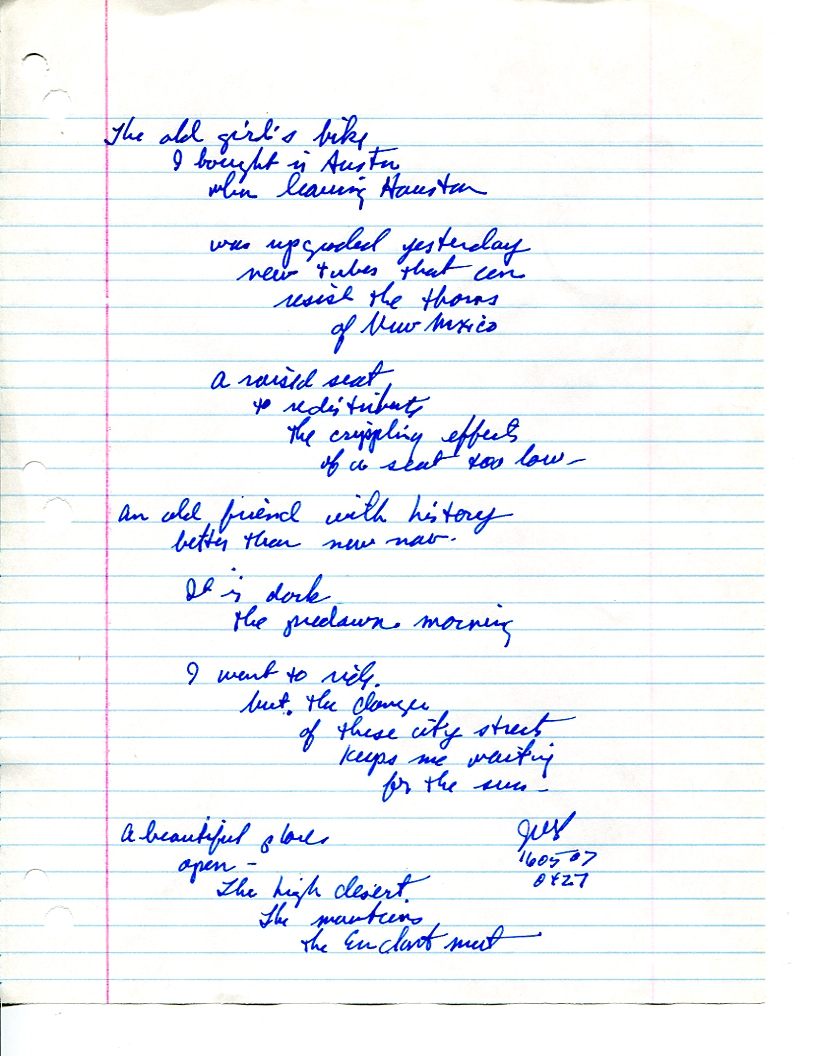 The old girl's bike
I bought in Austin
when leaving Houston
was upgraded yesterday
new tubes that can
resist the thorns
of New Mexico
A raised seat
to redistribute
the crippling effects
of a seat too low -
An old friend with history
better than new now.
It is dark
the predawn morning
I want to ride.
but. the danger
of these city streets
keeps me waiting
for the sun -
A beautiful place
open -
The high desert.
The mountains
the Enchantment
160507
0427